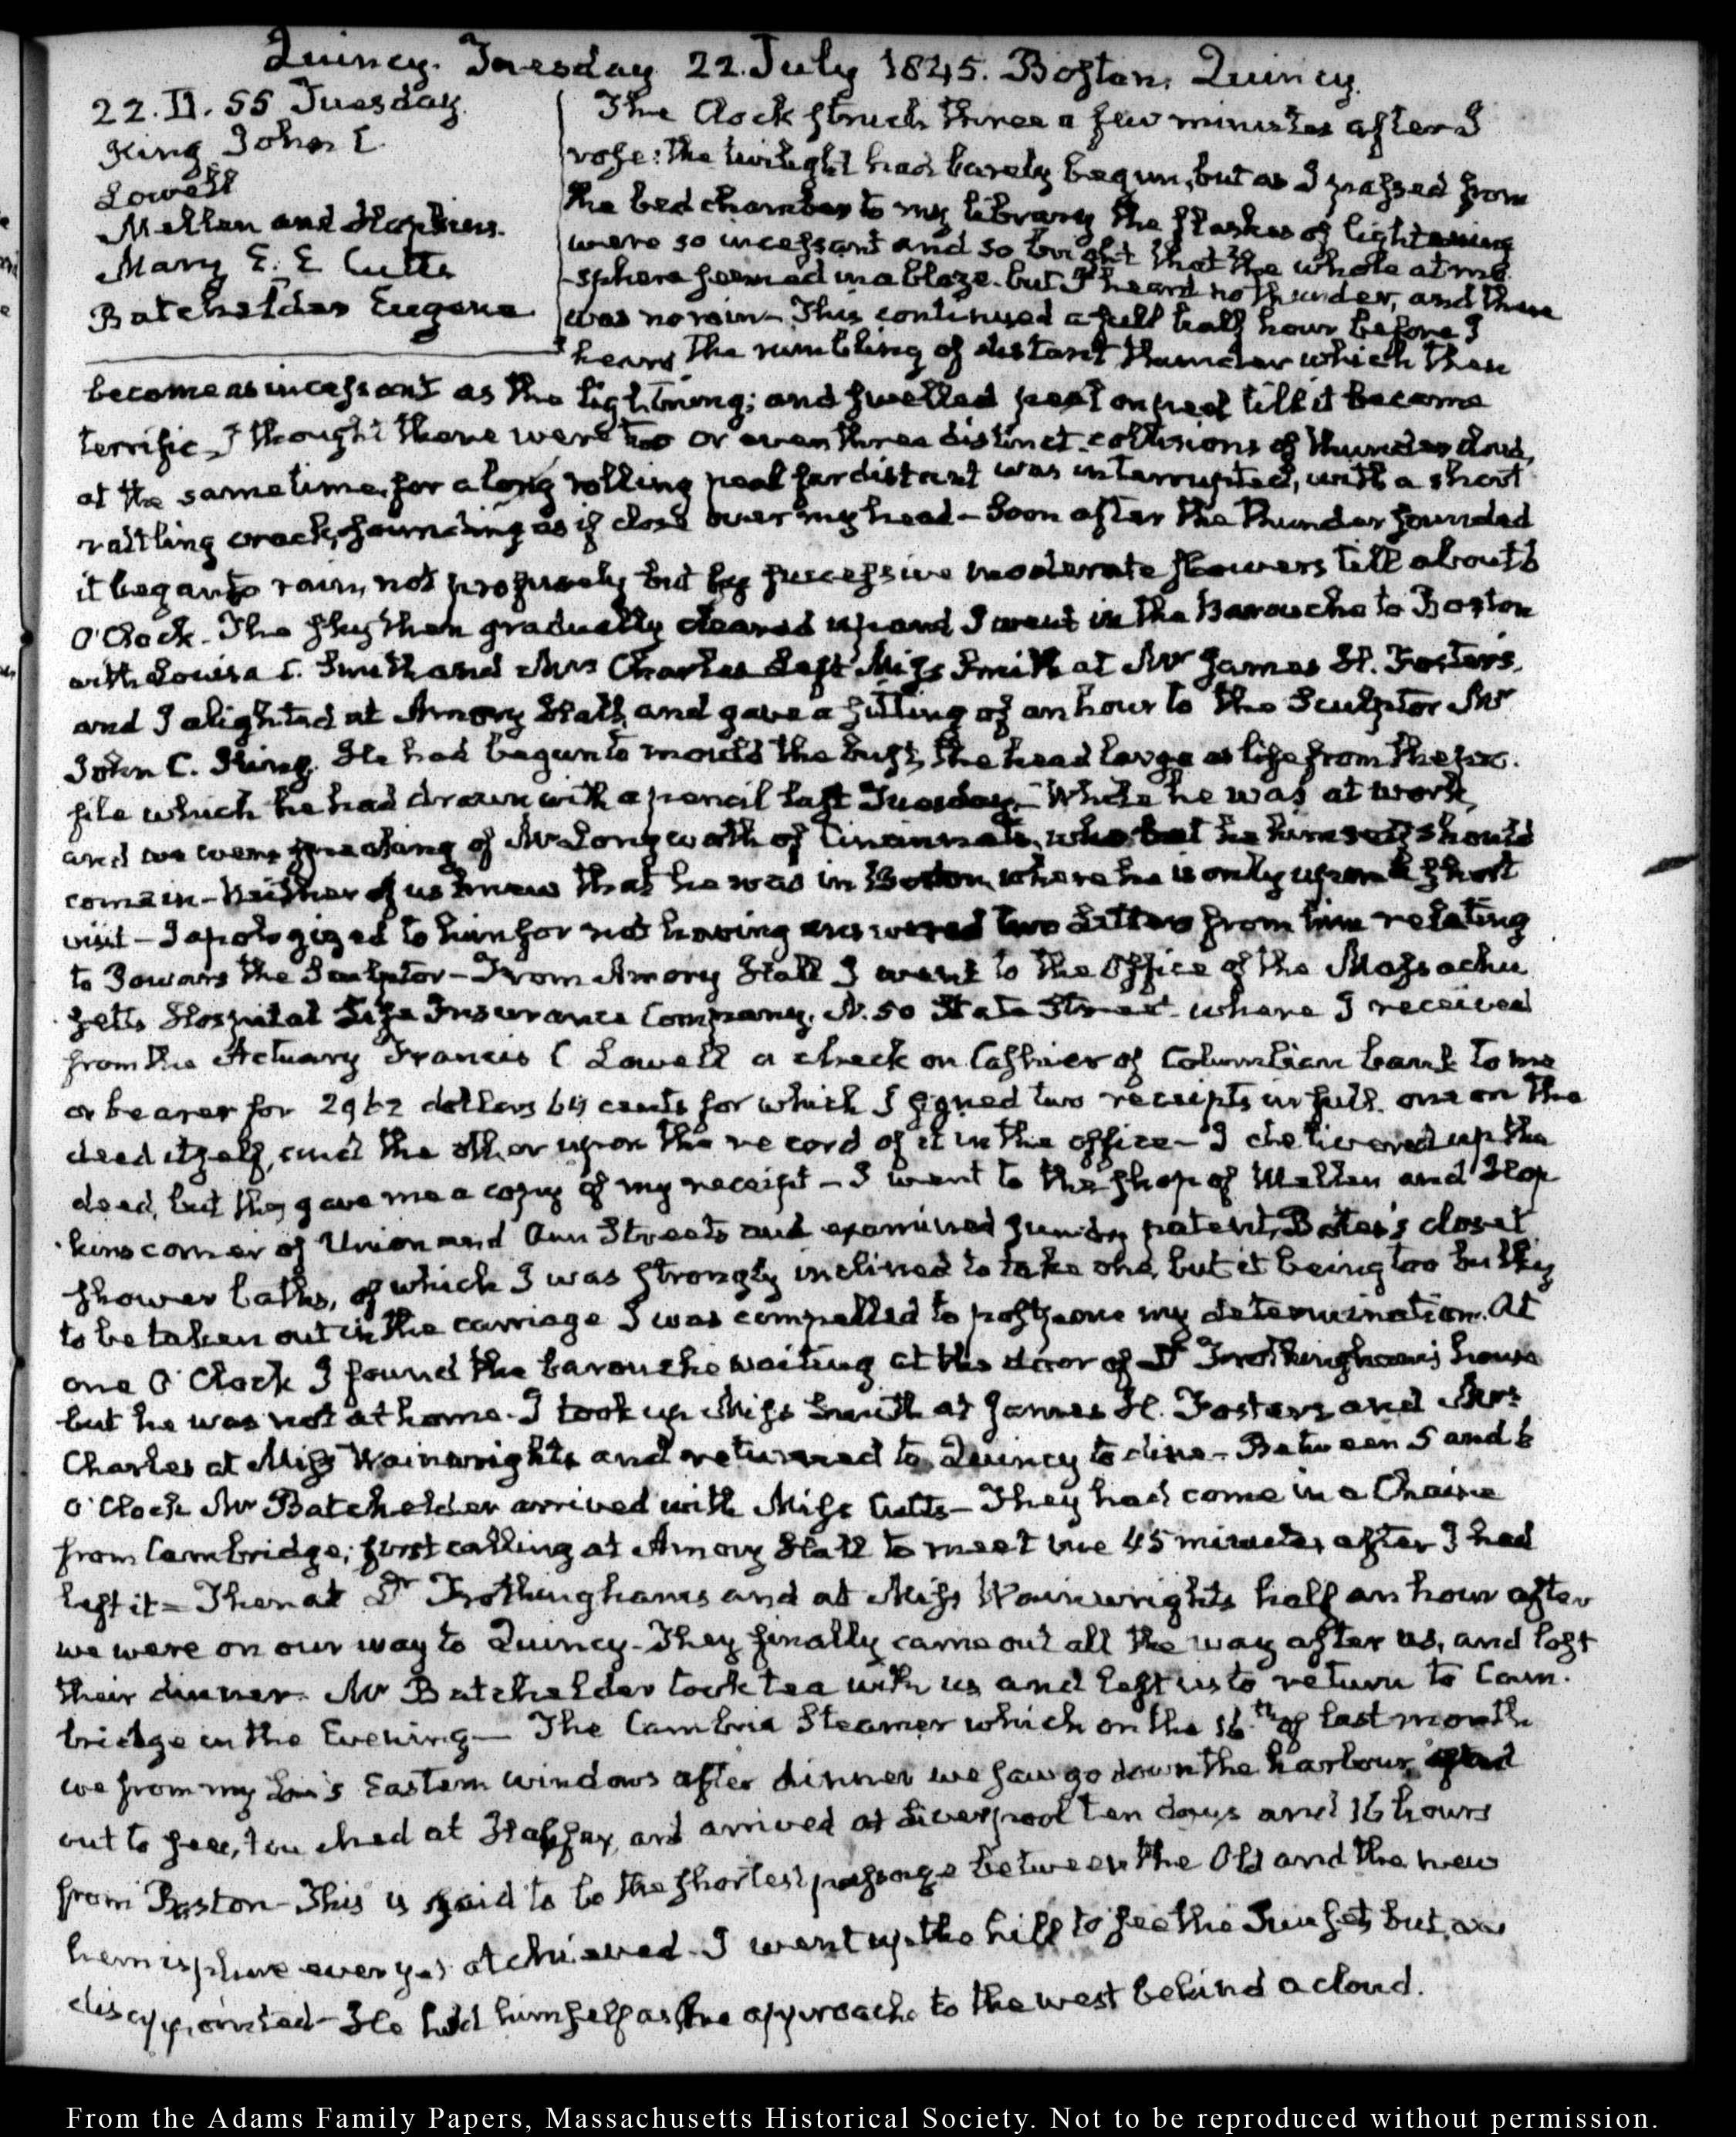 Quincy. Tuesday 22. July 1845. Boston. Quincy.
22. II. 55 Tuesday.
King John C.
Lowell
Mellen and Hopkins.
Mary E. E Cutts
Batchelder Eugene
The Clock struck three a few minutes after I
rose: the twilight had barely begun, but as I passed from
the bed chamber to my library the flashes of lightening
were so incessant and so bright that the whole atmo-
sphere seemed in a blaze. but I heard no thunder, and there
was no rain - This continued a full half hour before I
heard the rumbling of distant thunder which then
become as incessant as the lightning; and swelled peal on peal till it became
terrific. I thought there were two or even three distinct collisions of thunder clouds,
at the same time, for a long rolling peal far distant was interrupted, with a short
rattling crack, sounding as if close over my head - Soon after the thunder sounded
it began to rain, not profusely but by successive moderate showers till about 8
O'Clock. The sky then gradually cleared up and I went in the Barouche to Boston
with Louisa C. Smith and Mrs Charles Left Miss Smith at Mr James H. Foster's,
and I alighted at Amory Hall, and gave a sitting of an hour to the Sculptor Mr
John C. King. He had begun to mould the bust, the head large as life from the pro-
file which he had drawn with a pencil last Tuesday - While he was at work,
and we were speaking of Mr Longworth of Cincinnati, who but he himself should
come in - Neither of us knew that he was in Boston, where he is only upon a short
visit - I apologized to him for not having answered two Letters from him relating
to Powers the Sculptor - From Amory Hall I went to the Office of the Massachu
setts Hospital Life Insurance Company, N. 50 State Street where I received
from the Actuary Francis C Lowell a check on Cashier of Columbian bank to me
or bearer for 2962 dollars 64 cents for which I signed two receipts in full. one on the
deed itself, and the other upon the record of it in the office - I delivered up the
deed, but they gave me a copy of my receipt - I went to the shop of Mellen and Hop
kins corner of Union and Ann Streets and examined sundry patent, Bates's closet
shower baths, of which I was strongly inclined to take one, but it being too bulky
to be taken out in the carriage I was compelled to postpone my determination. At
one O'Clock I found the barouche waiting at the door of Dr Frothingham's house
but he was not at home. I took up Miss Smith at James H. Fosters and Mrs
Charles at Miss Wainwrights and returned to Quincy to dine - Between 5 and 6
O'Clock Mr Batchelder arrived with Miss Cutts - They had come in a Chaise
from Cambridge; first calling at Amory Hall to meet me 45 minutes after I had
left it - Then at Dr Frothinghams and at Miss Wainwrights half an hour after
we were on our way to Quincy - They finally came out all the way after us, and lost
their dinner. Mr Batchelder took tea with us and left us to return to Cam-
bridge in the Evening - The Cambria Steamer which on the 16.th of last month
we from my Son's Eastern windows after dinner we saw go down the harbour
out to sea, touched at Halifax, and arrived at Liverpool ten days and 16 hours
from Boston - This is said to be the shortest passage between the Old and the new
hemisphere ever yet atchieved - I went up the hill to see the Sun set, but was
disappointed - He hid himself as he approach to the west behind a cloud.
From the Adams Family Papers, Massachusetts Historical Society. Not to be reproduced without permission.